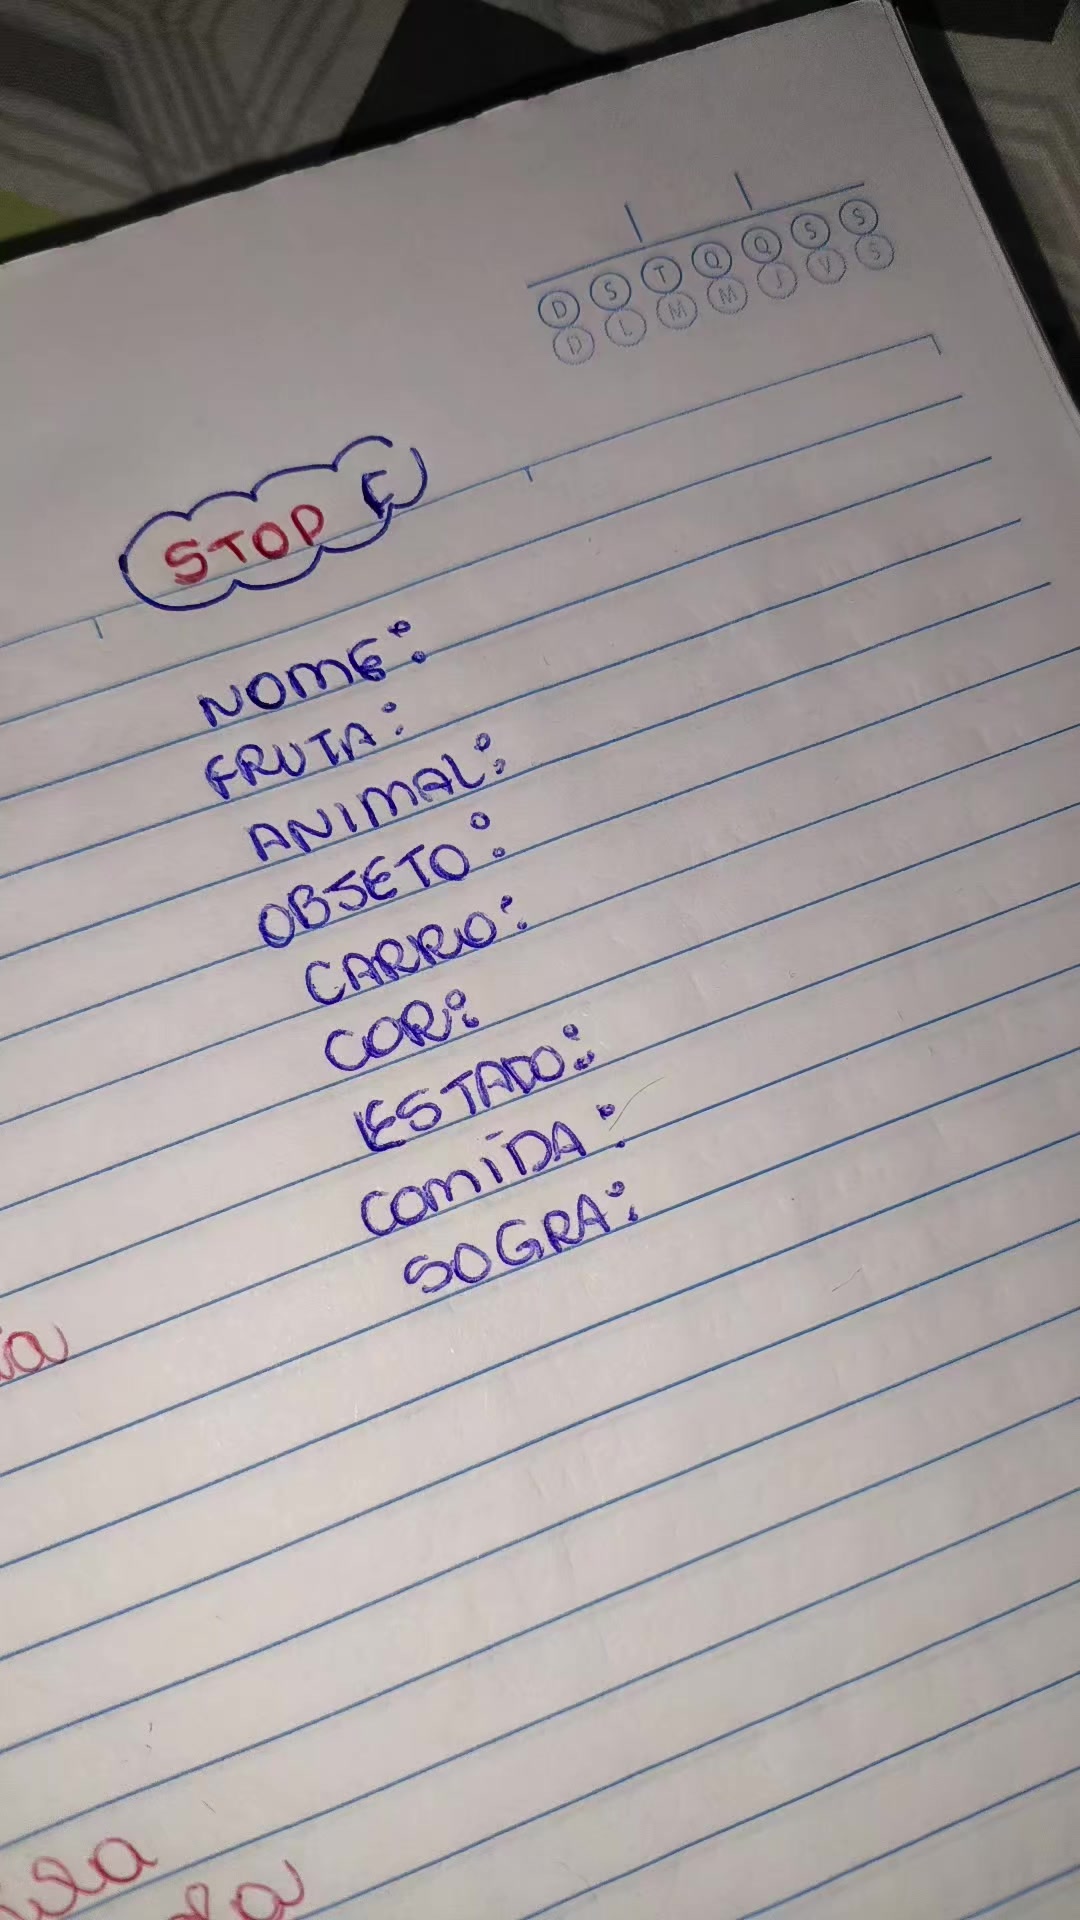 D S T Q Q S S
D L M M J V S
STOP E
NOME:
FRUTA:
ANIMAL:
OBJETO:
CARRO:
COR:
ESTADO:
COMIDA:
SOGRA: